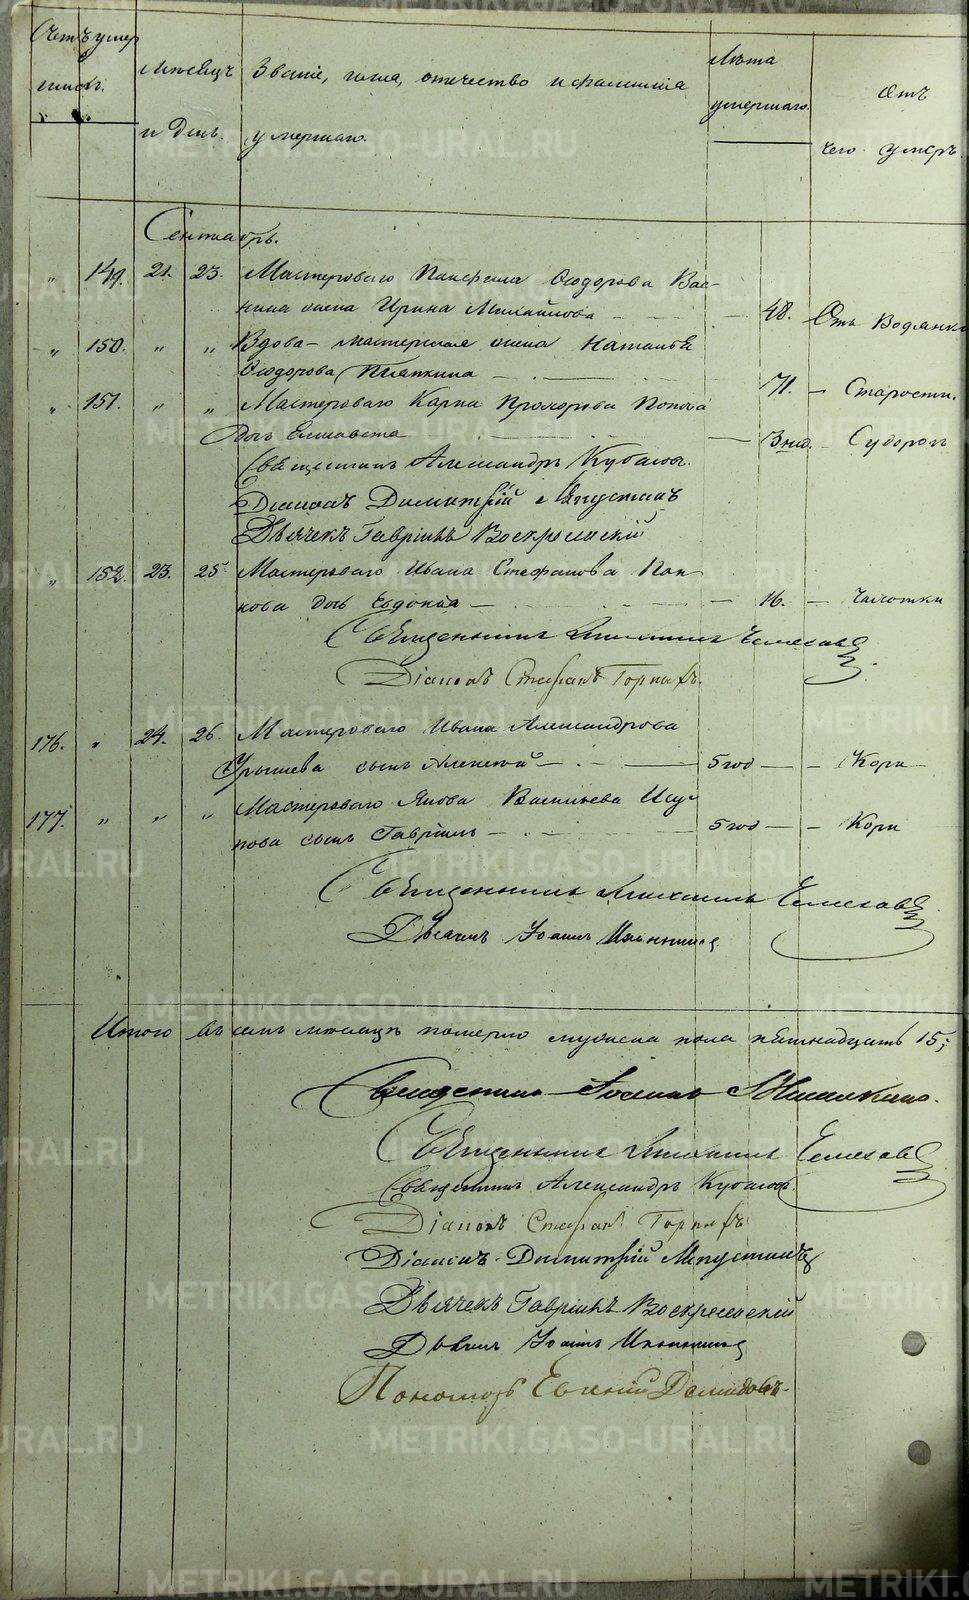 Счетъ умер
шихъ.
Мѣсяцъ
и день.
Званіе, имя, отчество и фамилія
умершаго.
Лѣта
умершаго.
Отъ
чего умеръ.
Сентябрь.
" 149. 21. 23. Мастероваго Памфила Ѳеодорова
жена Ирина Михайлова — 48. Отъ Водянки
" 150. " " Вдова – мастерская жена Наталья
Ѳеодорова — 71. — Старости.
" 151. " " Мастероваго Карпа Прохорова Попова
дочь Елисавета — 3 нед. — Судорогъ
Священникъ Александръ
Діаконъ Димитрій
Дьячекъ Гавріилъ Воскресенскій
" 152. 23. 25 Мастероваго Ивана Стефанова Пан-
кова дочь Евдокія — 16. — Чахотки
Священникъ Михаилъ
Діаконъ Стефанъ
176. " 24. 26. Мастероваго Ивана Александрова
сынъ Алексѣй — 5 год — Кори
177. " " " Мастероваго Якова Васильева Юсу-
пова сынъ Гавріилъ — 5 год — Кори
Священникъ Михаилъ
Дьячекъ Іоаннъ
Итого въ семъ мѣсяцѣ померло мужеска пола пятнадцать 15;
Священникъ
Священникъ Михаилъ
Священникъ Александръ
Діаконъ Стефанъ
Діаконъ Димитрій
Дьячекъ Гавріилъ Воскресенскій
Дьячекъ Іоаннъ
Пономарь Евгеній Демидовъ
METRIKI.GASO-URAL.RU